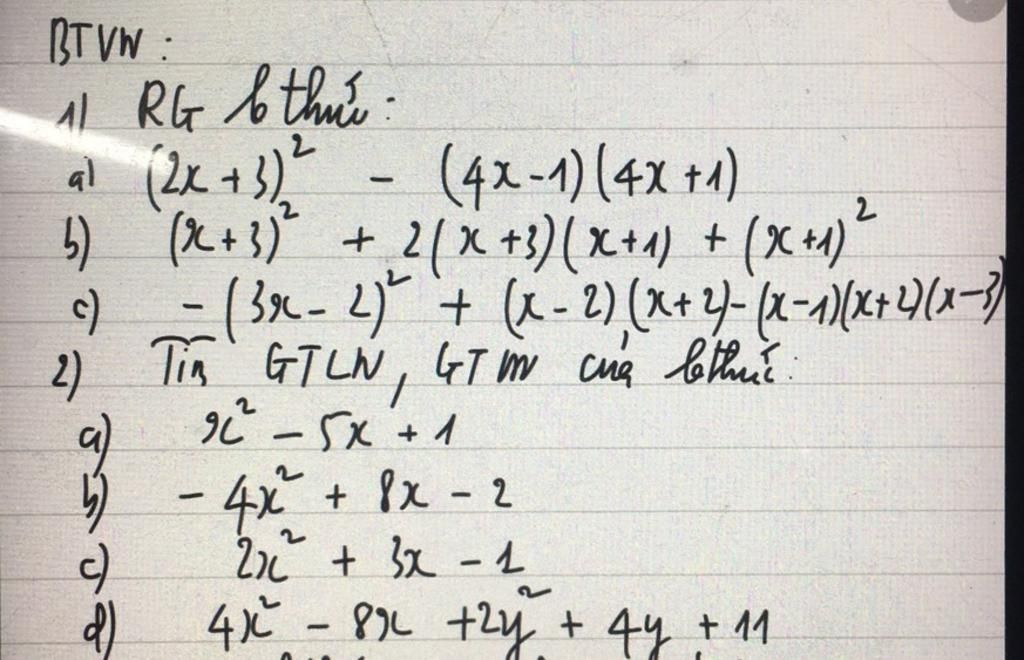 BTVN :
1) RG bthức :
a) (2x + 3)² - (4x - 1)(4x + 1)
b) (x + 3)² + 2(x + 3)(x + 1) + (x + 1)²
c) - (3x - 2)² + (x - 2)(x + 2) - (x - 1)(x + 2)(x - 3)
2) Tìm GTLN, GTNN của bthức :
a) x² - 5x + 1
b) - 4x² + 8x - 2
c) 2x² + 3x - 1
d) 4x² - 8x + 2y² + 4y + 11